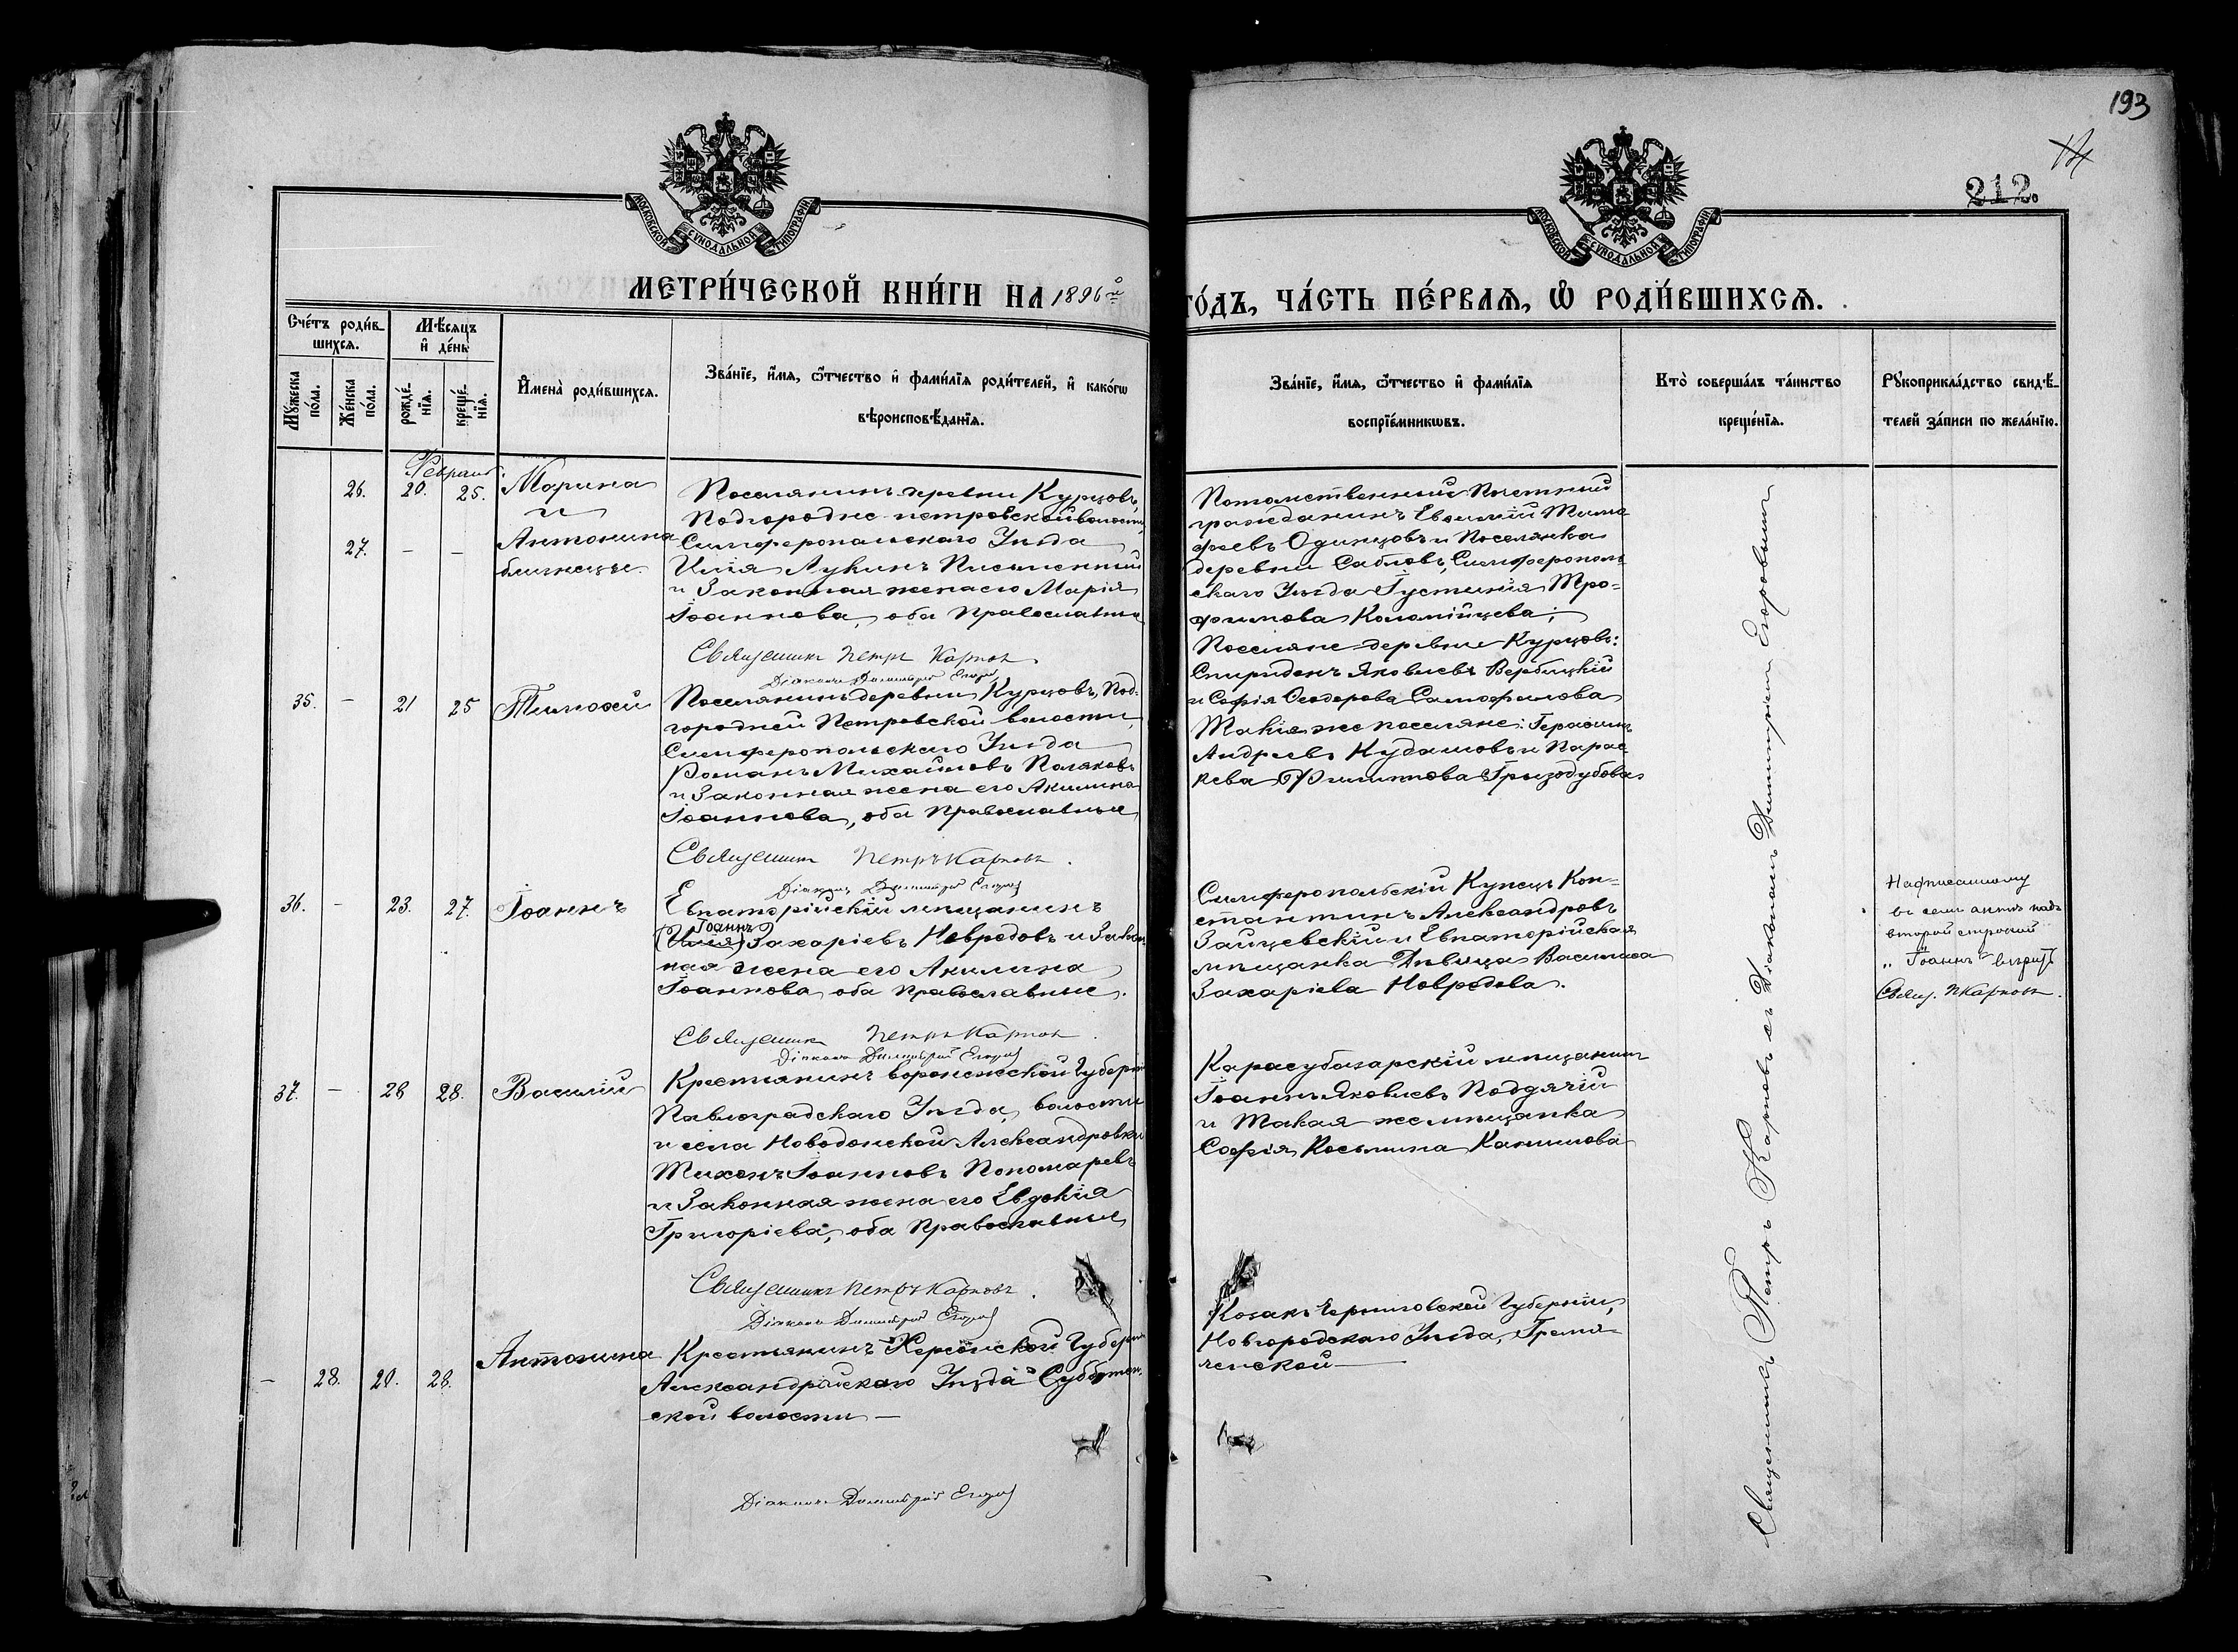 193
14
212.
МОСКОВСКОЙ СѴНОДАЛЬНОЙ ТИПОГРАФІИ
МОСКОВСКОЙ СѴНОДАЛЬНОЙ ТИПОГРАФІИ
МЕТРИ́ЧЕСКОЙ КНИ́ГИ НА 1896й
ГО́ДЪ, ЧА́СТЬ ПЕ́РВАЯ, Ѡ РОДИ́ВШИХСЯ.
Сче́тъ роди́в-
шихся.
Мѣ́сяцъ
и де́нь
Мꙋ́жеска
по́ла.
Же́нска
по́ла.
рожде́-
нїя.
креще́-
нїя.
Имена̀ роди́вшихся.
Зва́нїе, и́мя, ѻ҆́тчество и фами́лїя роди́телей, и како́гѡ
вѣроисповѣ́данїя.
Зва́нїе, и́мя, ѻ҆́тчество и фами́лїя
воспрїе́мникѡвъ.
Кто̀ соверша́лъ та́инство
креще́нїя.
Рꙋкоприкла́дство свидѣ́-
телей за́писи по жела́нїю.
Февраль
26. 20. 25. Марина
и
27. — — Антонина
близнецы.
Поселянинъ деревни Курцовъ,
Подгородне-петровской волости,
Симферопольскаго Уѣзда
Илія Лукинъ Письменный
и Законная жена его Марія
Іоаннова, оба Православные
Священникъ Петръ Карповъ
Діаконъ Димитрій Егоровъ
Потомственный Почетный
гражданинъ Евѳимій Тимо-
феевъ Одинцовъ и Поселянка
деревни Сабловъ, Симферополь-
скаго Уѣзда Іустинія Тро-
фимова Коломійцева;
Поселяне деревни Курцовъ:
Спиридонъ Яковлевъ Вербицкій
и Софія Ѳеодорова Самофалова
35. — 21 25 Тимоѳей
Поселянинъ деревни Курцовъ, Под-
городней Петровской волости,
Симферопольскаго Уѣзда
Романъ Михайловъ Поляковъ
и Законная жена его Акилина
Іоаннова, оба Православные
Священникъ Петръ Карповъ.
Діаконъ Димитрій Егоровъ
Такіе же поселяне: Герасимъ
Андреевъ Кудашовъ и Парас-
кева Филиппова Грызодубова
36. — 23. 27. Іоаннъ
Евпаторійскій мѣщанинъ
Іоаннъ
(Илія) Захаріевъ Невредовъ и Закон-
ная жена его Акилина
Іоаннова, оба Православные.
Священникъ Петръ Карповъ.
Діаконъ Димитрій Егоровъ
Симферопольскій Купецъ Кон-
стантинъ Александровъ
Зайцевскій и Евпаторійская
мѣщанка Дѣвица Василиса
Захаріева Невредова.
Надписанному
въ семъ актѣ надъ
второй строкой
„Іоаннъ" вѣрить
Свящ. ПКарповъ.
37. — 26 28. Василій
Крестьянинъ Воронежской Губерніи
Павлоградскаго Уѣзда, волости
и села Новодонской Александровки
Тихонъ Іоанновъ Пономаревъ
и Законная жена его Евдокія
Григоріева, оба Православные
Священникъ Петръ Карповъ.
Діаконъ Димитрій Егоровъ
Карасубазарскій мѣщанинъ
Іоаннъ Яковлевъ Поддячій
и Такая же мѣщанка
Софія Косьмина Канилова
— 28. 20. 28. Антонина
Крестьянинъ Херсонской Губерніи
Александрійскаго Уѣзда Субботов-
ской волости —
Діаконъ Димитрій Егоровъ
Козакъ Черниговской Губерніи,
Новгородскаго Уѣзда, Гремя-
ченской —
Священникъ Петръ Карповъ съ Діакономъ Димитріемъ Егоровымъ